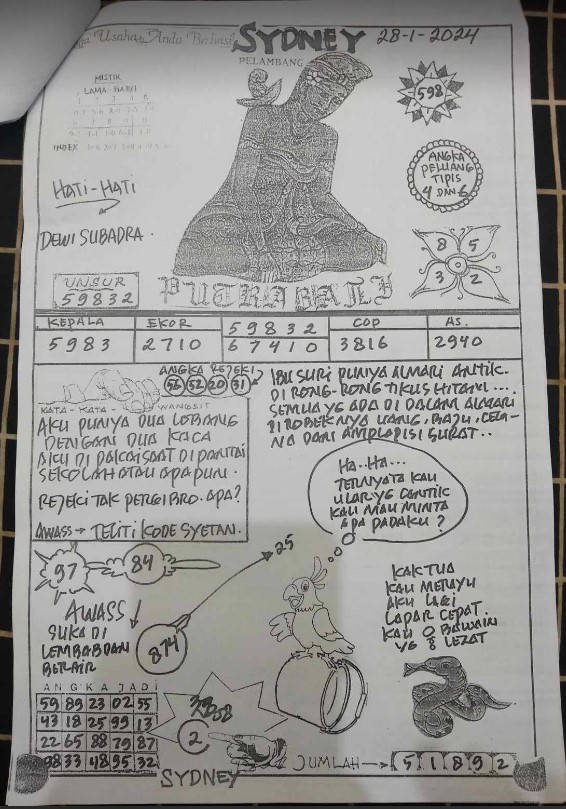 Usaha Anda Berhasil
SYDNEY
28-1-2024
PELAMBANG
MISTIK
LAMA BARU
INDEX
598
HATI-HATI
ANGKA
PELUANG
TIPIS
4 DAN 6
DEWI SUBADRA.
8 5
3 2
UNSUR
59832
PUTRA BALI
KEPALA EKOR 59832 COP AS.
5983 2710 67410 3816 2940
ANGKA REJEKI
56 52 20 31
IBU SURI PUNYA ALMARI ANTIK.
DI RONG-RONG TIKUS HITAM....
SEMUA YG ADA DI DALAM ALMARI
DI ROBEKNYA UANG, BAJU, CELA-
NA DAN AMPLOP ISI SURAT..
KATA-KATA WANGSIT
AKU PUNYA DUA LOBANG
DENGAN DUA KACA
AKU DI PAKAI SAAT DI PANTAI
SEKOLAH ATAU APA PUN.
REJEKI TAK PERGI BRO. APA?
AWASS → TELITI KODE SYETAN.
HA..HA...
TERNYATA KAU
ULAR YG CANTIK
KAU MAU MINTA
APA PADAKU?
97
84
25
AWASS
SUKA DI
LEMBABDAN
BERAIR
874
KAKTUA
KAU MERAYU
AKU LAGI
LAPAR CEPAT.
KAU O BAWAIN
YG 8 LEZAT
ANGKA JADI
59 89 23 02 55
43 18 25 99 13
22 65 88 79 87
98 33 48 95 32
2
JUMLAH → 5 1 8 9 2
SYDNEY